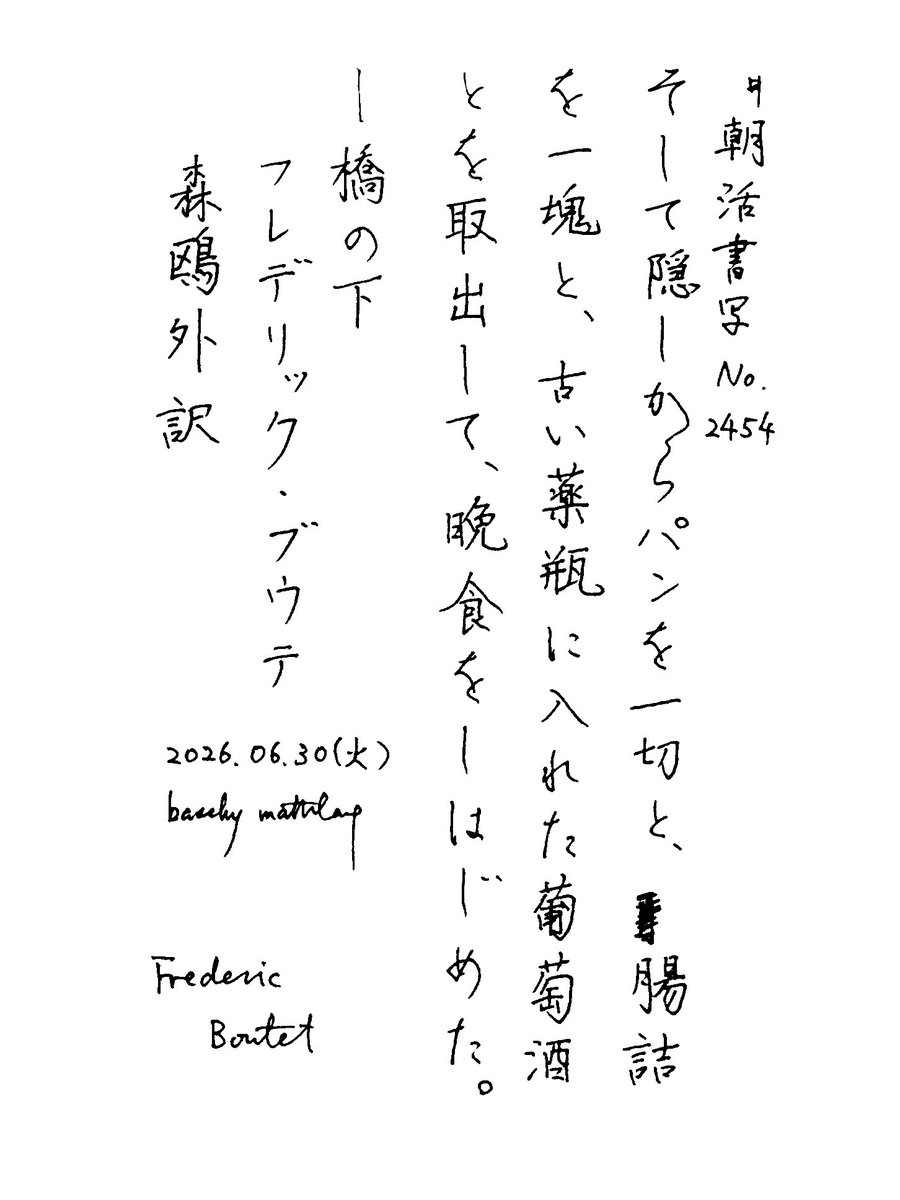 #朝活書写 No. 2454
そして隠しからパンを一切と、腸詰
を一塊と、古い薬瓶に入れた葡萄酒
とを取出して、晩食をしはじめた。
―橋の下
フレデリック・ブウテ
森鷗外訳
2026.06.30(火)
Frederic
Boutet